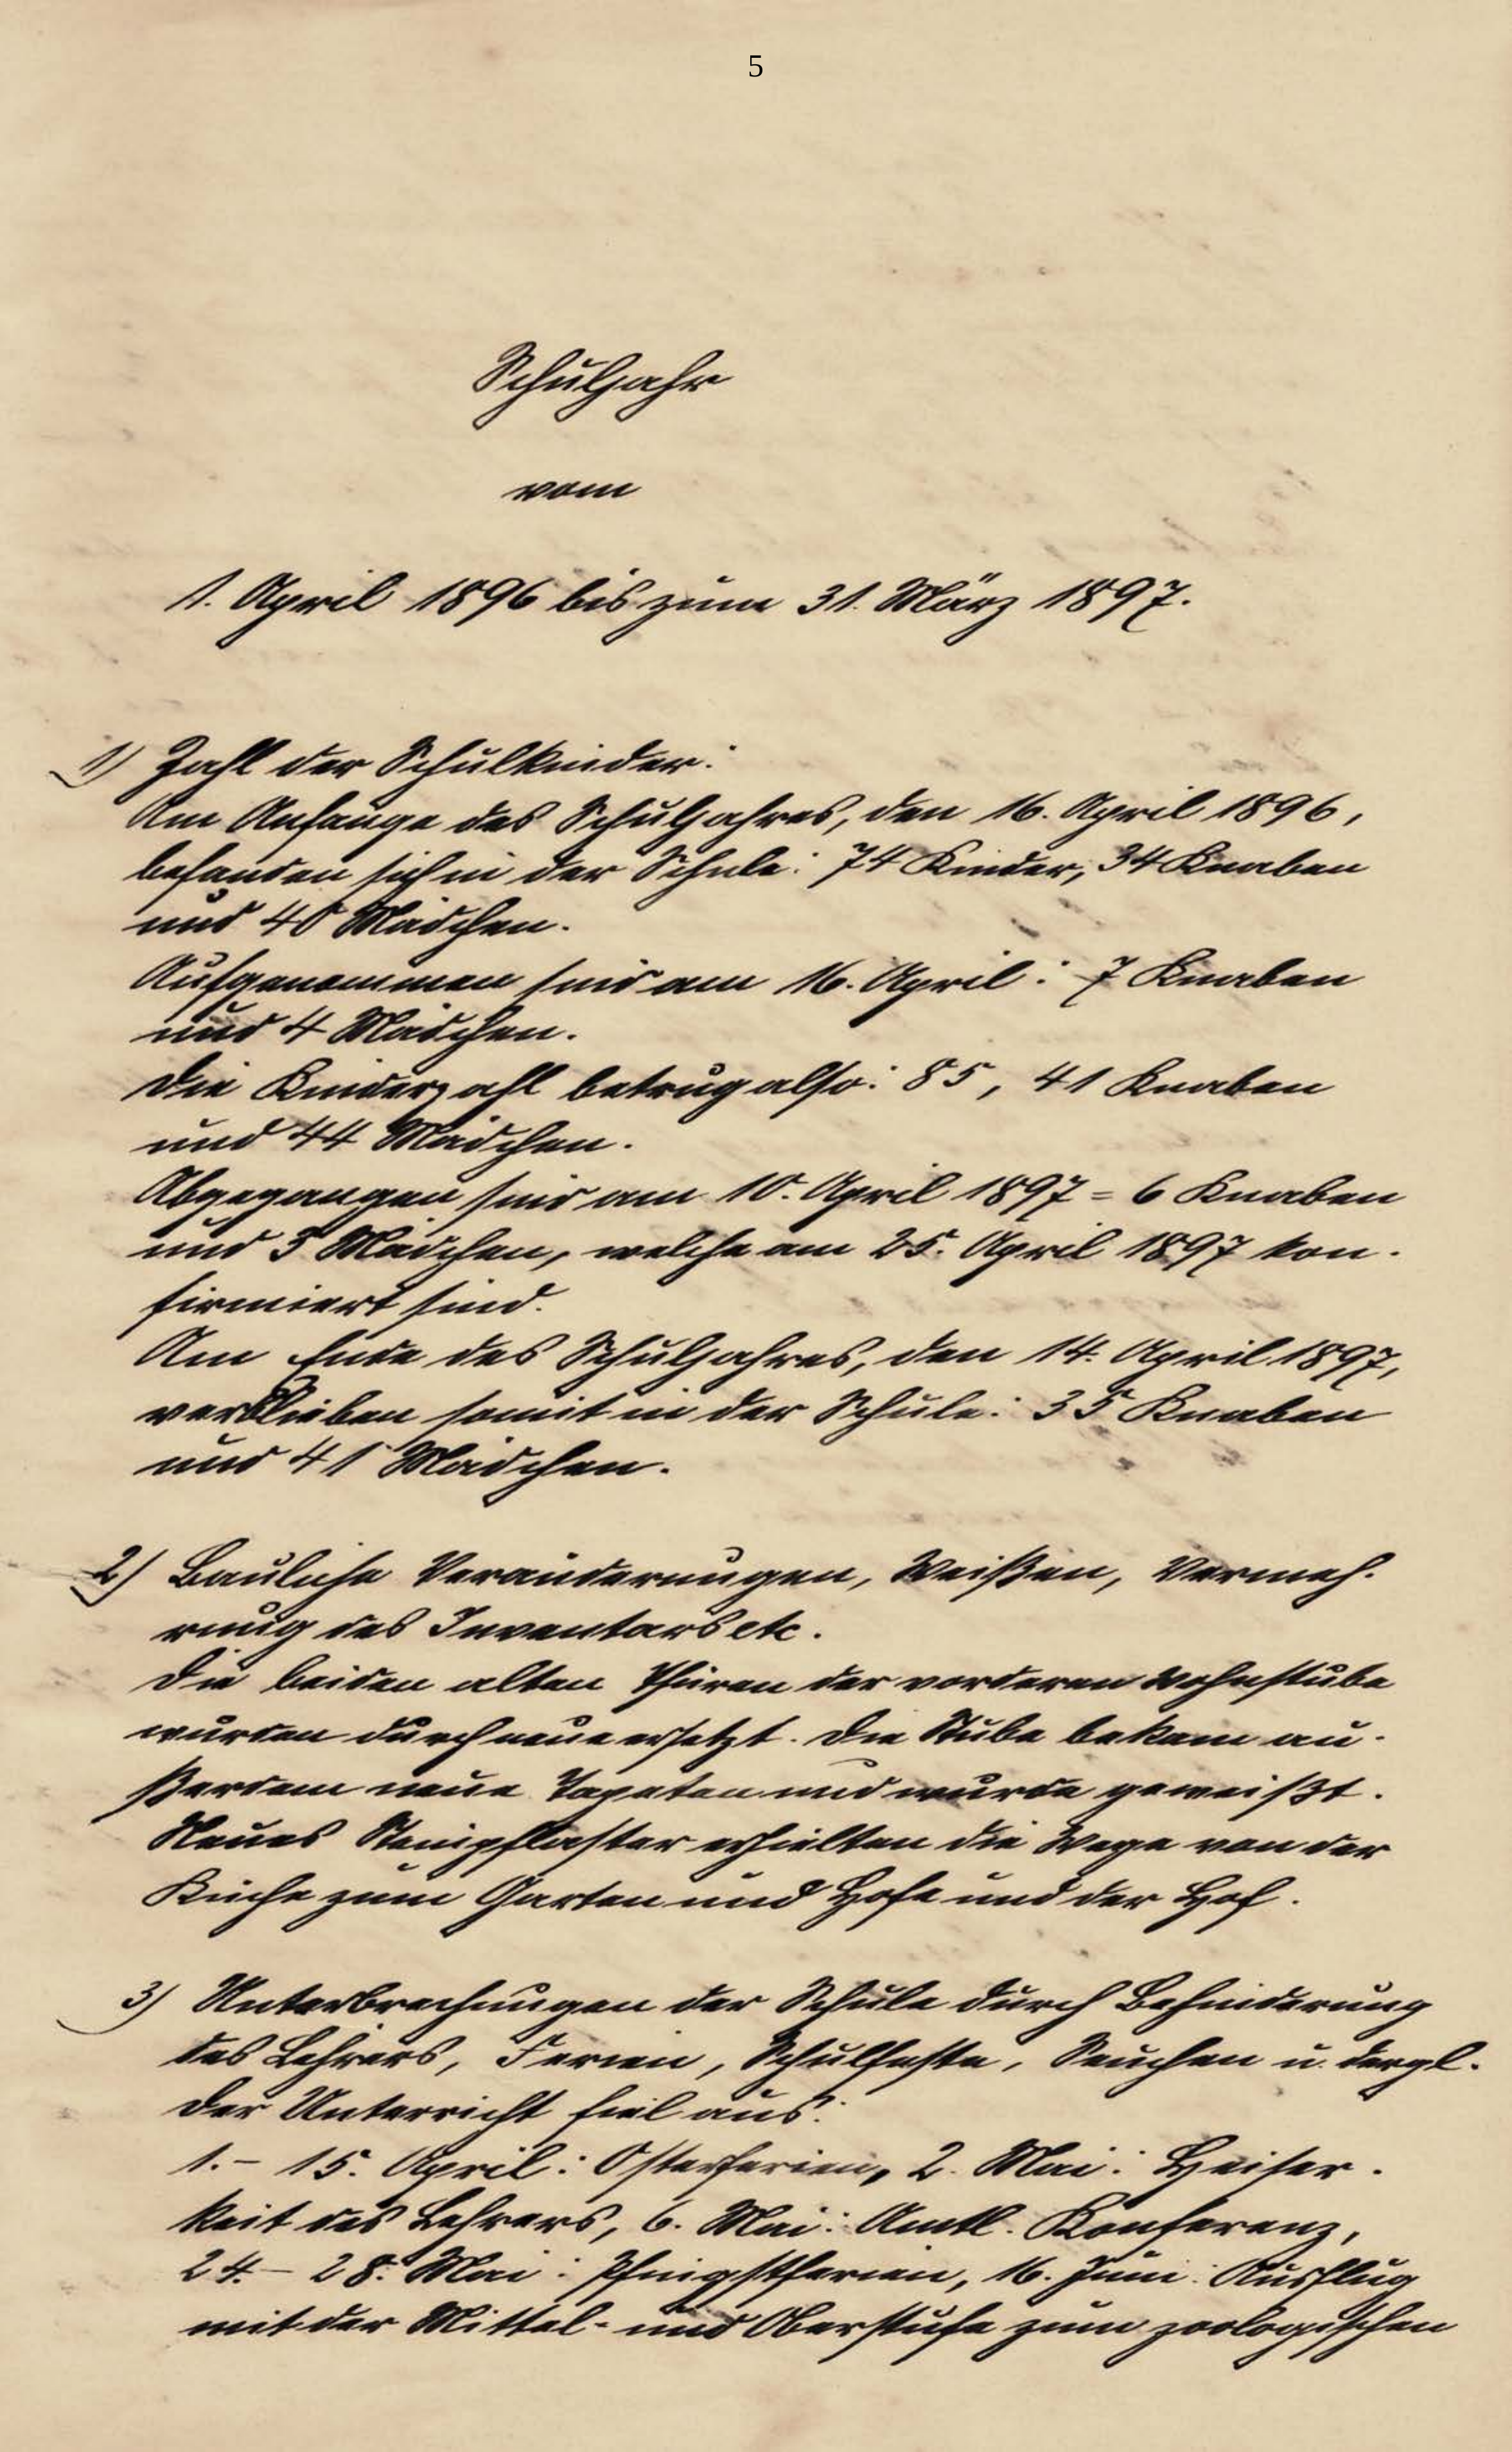 5
Schuljahr
vom
1. April 1896 bis zum 31. März 1897.
1) Zahl der Schulkinder:
Am Anfange des Schuljahres, den 16. April 1896,
befanden sich in der Schule: 74 Kinder, 34 Knaben
und 40 Mädchen.
Aufgenommen sind am 16. April: 7 Knaben
und 4 Mädchen.
Die Kinderzahl betrug also: 85, 41 Knaben
und 44 Mädchen.
Abgegangen sind am 10. April 1897 = 6 Knaben
und 3 Mädchen, welche am 25. April 1897 kon-
firmiert sind.
Am Ende des Schuljahres, den 14. April 1897,
verblieben somit in der Schule: 35 Knaben
und 41 Mädchen.
2) Bauliche Veränderungen, Weißen, Vermeh-
rung des Inventars etc.
Die beiden alten Thüren der vorderen Wohnstube
wurden durch neue ersetzt. Die Stube bekam au-
ßerdem neue Tapeten und wurde geweißt.
Neues Steinpflaster erhielten die Wege von der
Küche zum Garten und Hofe und der Hof.
3) Unterbrechungen der Schule durch Behinderung
des Lehrers, Ferien, Schulfeste, Seuchen u. dergl.
Der Unterricht fiel aus:
1. – 15. April: Osterferien, 2. Mai: Heiser-
keit des Lehrers, 6. Mai: Amtl. Konferenz,
24. – 28. Mai: Pfingstferien, 16. Juni: Ausflug
mit der Mittel- und Oberstufe zum zoologischen